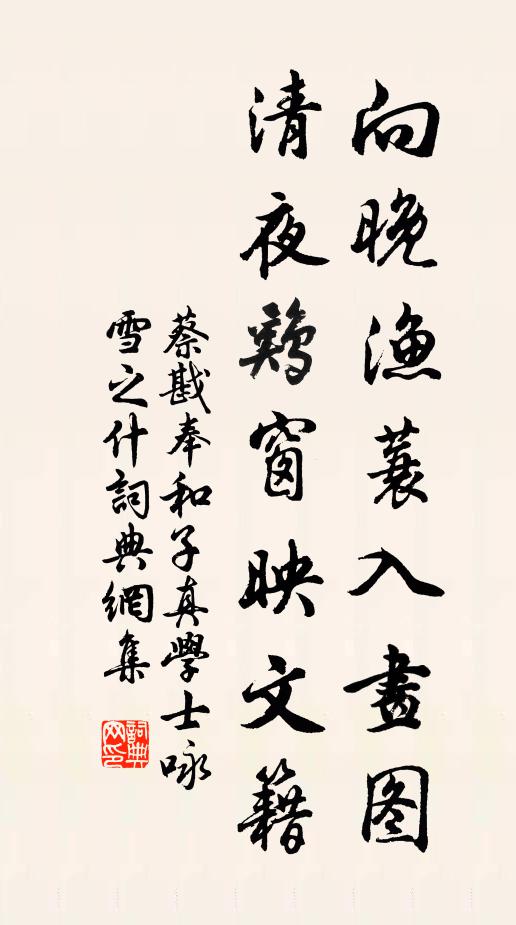 向晚渔蓑入畫图
清夜鷄窗映文籍
蔡戡奉和子真學士咏
雪之什詞典網集
詞典網印